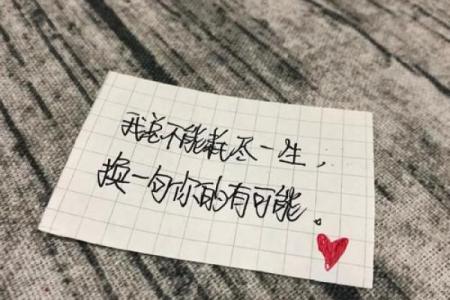 我总不能耗尽一生，
换一句你的有可能。